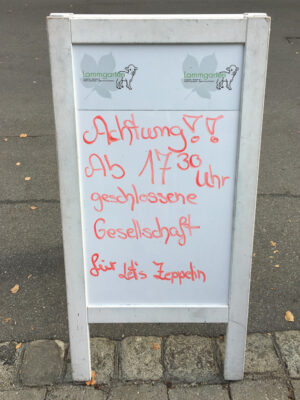 Lammgarten Lammgarten
Achtung!!
Ab 17³⁰ Uhr
geschlossene
Gesellschaft
für Let's Zeppelin